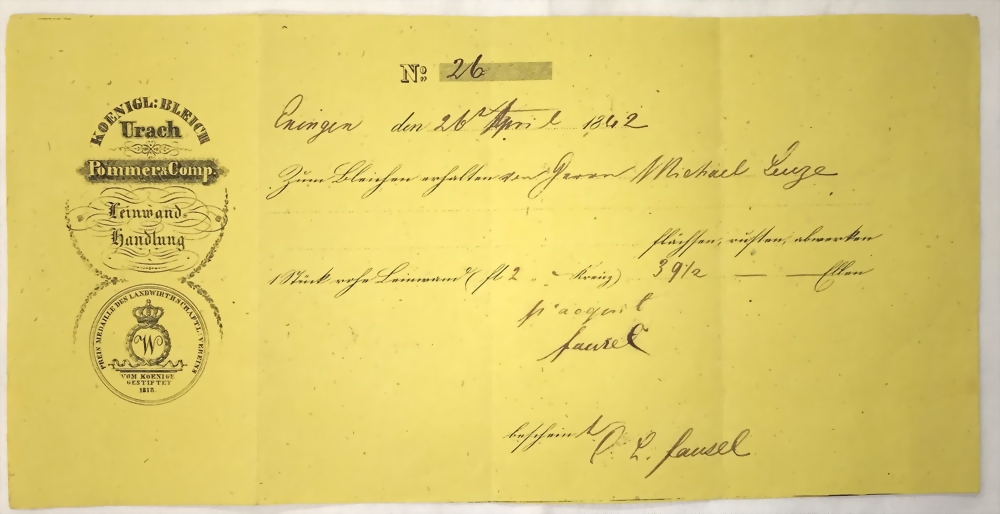 KOENIGL: BLEICH
Urach
Pommer & Comp.
Leinwand-
Handlung
PREIS MEDAILLE DES LANDWIRTHSCHAFTL: VEREINS
W
VOM KOENIGE
GESTIFTET
1818.
No: 26
Eningen den 26t April 1842
Zum Bleichen erhalten von Herrn Michael Leuze
flächsen, rusten, abwerken
1 Stück rohe Leinwand (fl 2 " – Kreuz) 39 1/2 — — Ellen
fausel
bescheint
C. L. fausel